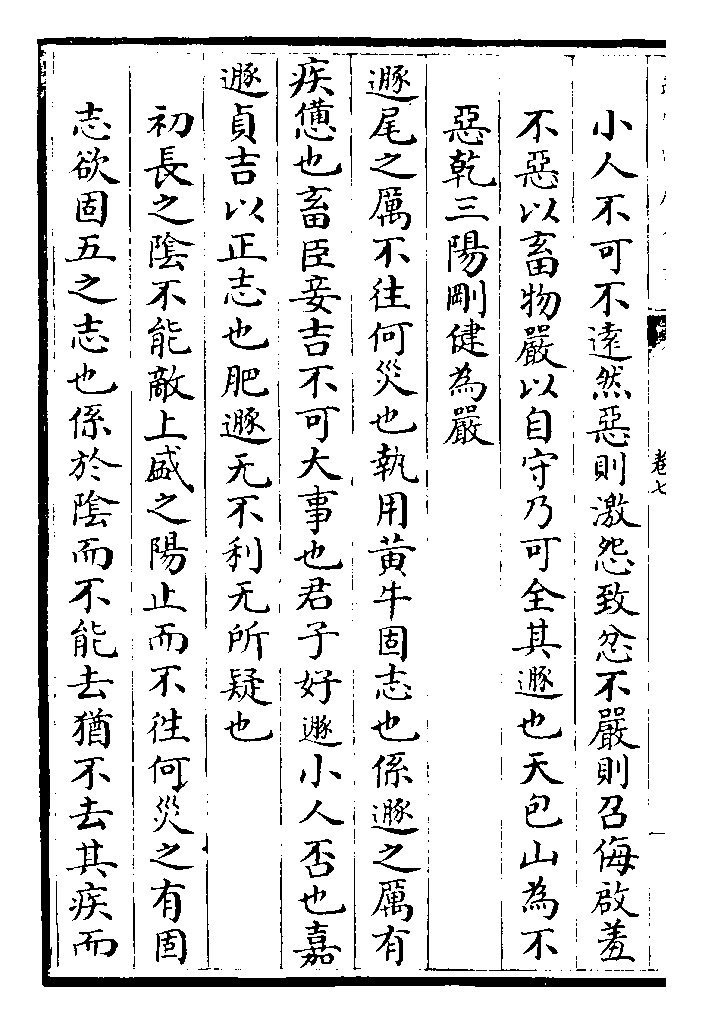 小人不可不遠然惡則激怨致忿不嚴則召侮啟羞
不惡以畜物嚴以自守乃可全其遯也天包山為不
惡乾三陽剛健為嚴
遯尾之厲不往何災也執用黃牛固志也係遯之厲有
疾憊也畜臣妾吉不可大事也君子好遯小人否也嘉
遯貞吉以正志也肥遯无不利无所疑也
初長之陰不能敵上盛之陽止而不徃何災之有固
志欲固五之志也係於陰而不能去猶不去其疾而
卷七